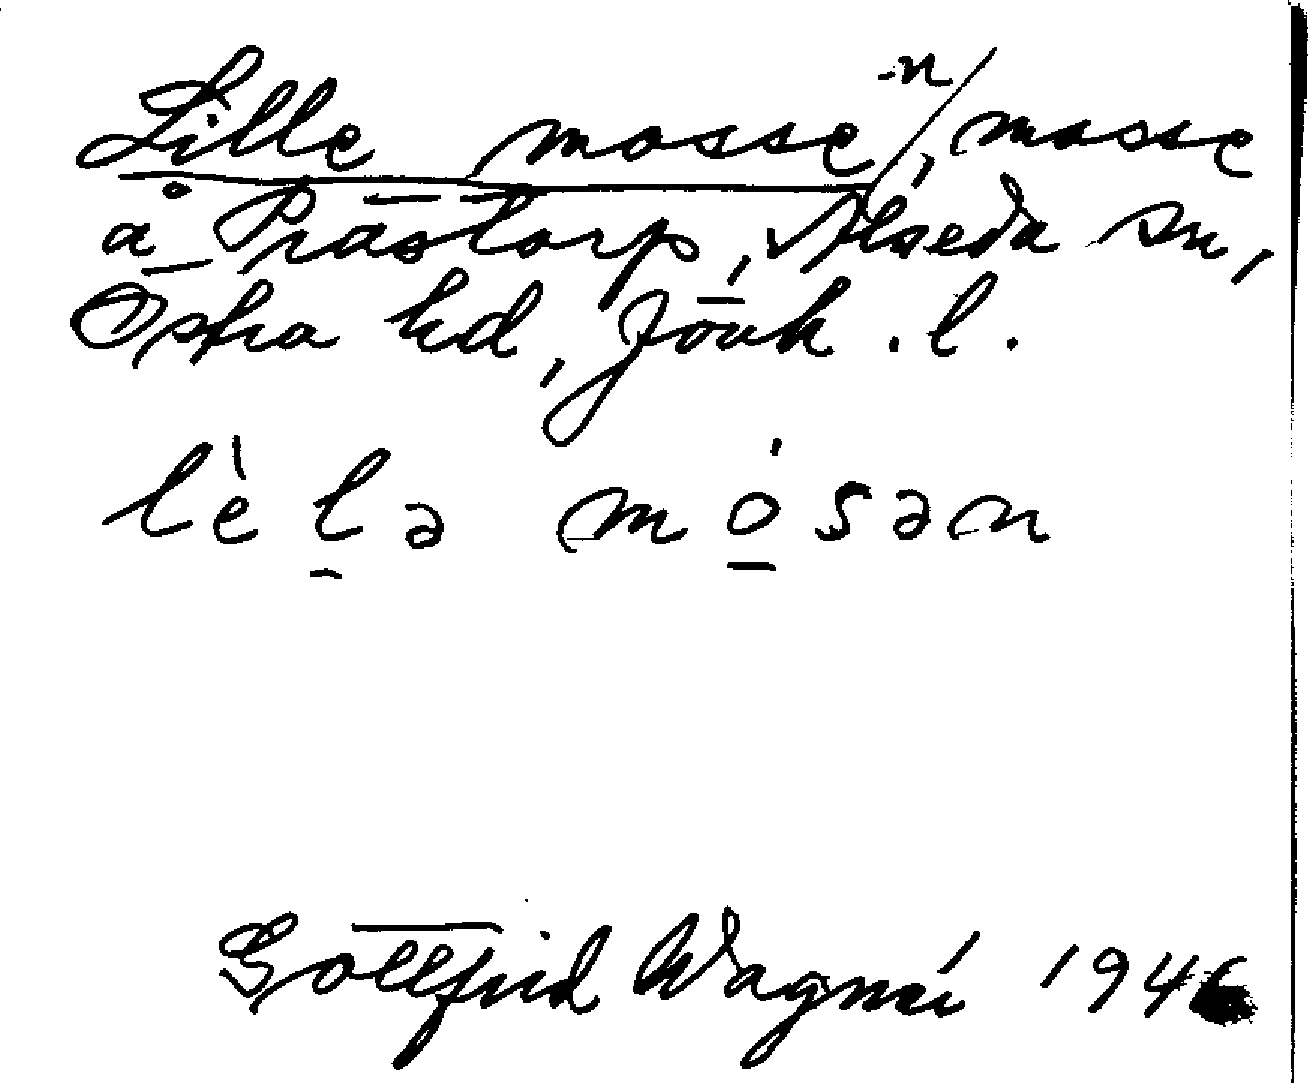 Lille mosse -n/, mosse
å Prästorp, Alseda sn,
Östra hd, Jönk. l.
lèlə mósən
Gottfrid Wagnér 1946